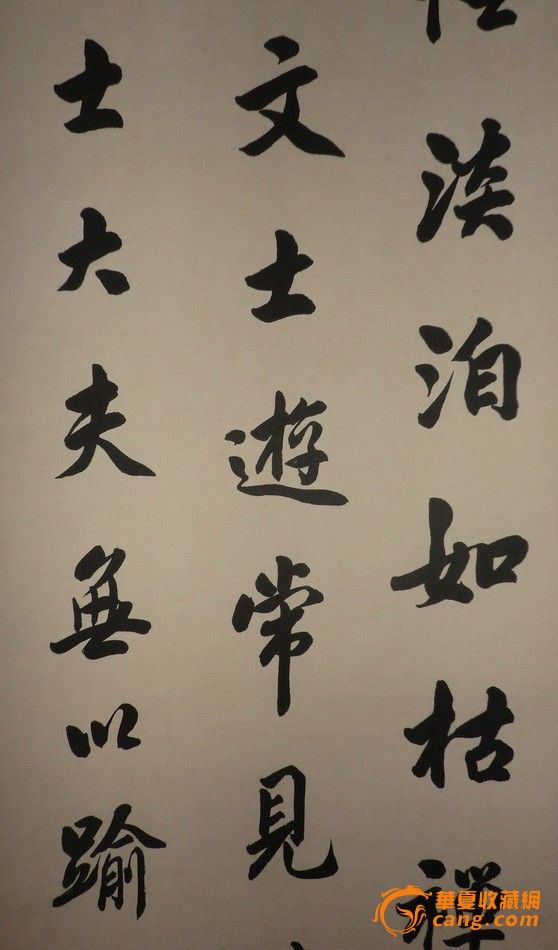 淡泊如枯禪
文士遊常見
士大夫無以踰
華夏收藏網
cang.com